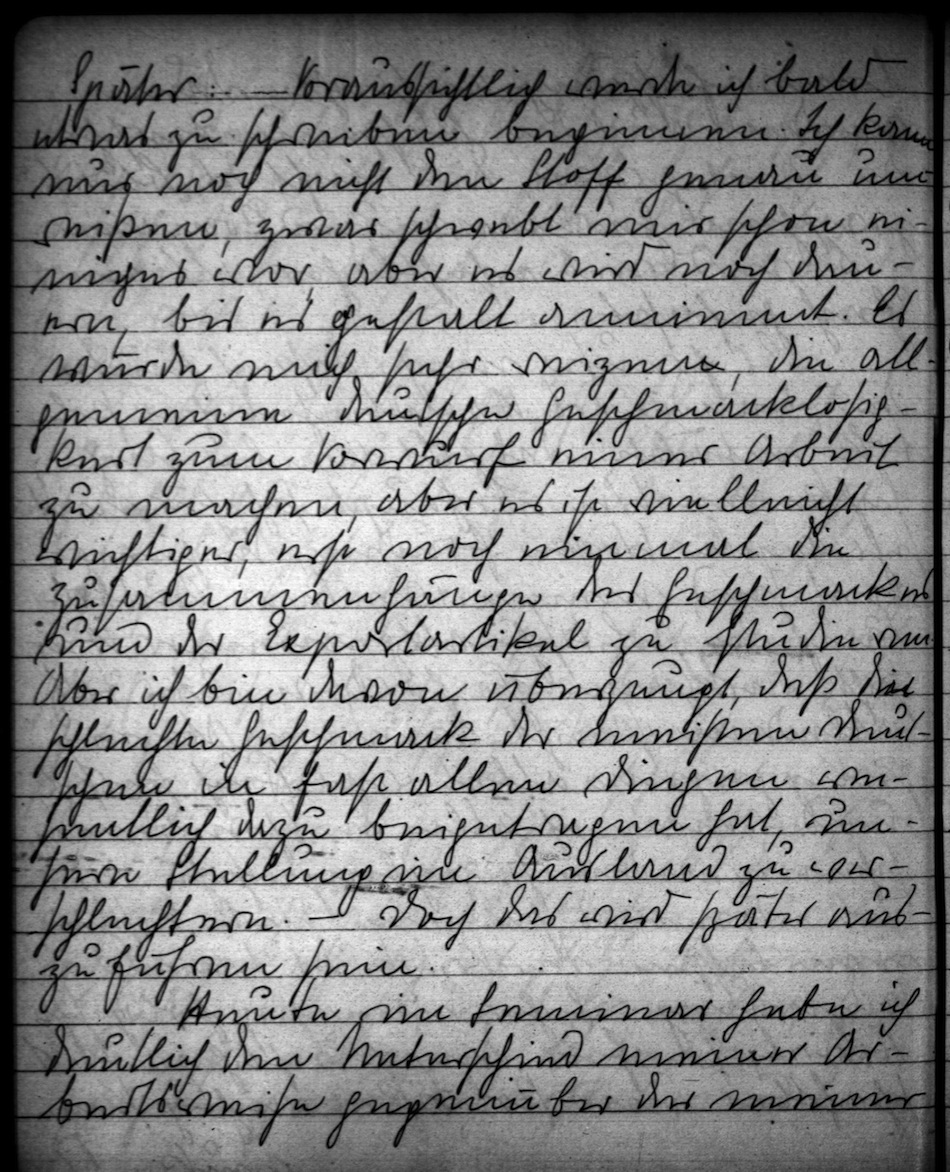 Später: — Voraussichtlich werde ich bald
etwas zu schreiben beginnen. Ich kann
nur noch nicht den Stoff genau um-
reißen, zwar schwebt mir schon ei-
niges vor, aber es wird noch dau-
ern, bis es gestalt annimmt. Es
würde mich sehr reizen, die all-
gemeine deutsche Geschmacklosig-
keit zum Vorwurf einer Arbeit
zu machen, aber es ist vielleicht
wichtiger, erst noch einmal die
Zusammenhänge des Geschmackes
und der Exportartikel zu studieren.
Aber ich bin davon überzeugt, daß der
schlechte Geschmack der meisten Deut-
schen in fast allen Dingen we-
sentlich dazu beigetragen hat, un-
sere Stellung im Ausland zu ver-
schlechtern. — Doch das wird später aus-
zuführen sein.
Heute im Seminar habe ich
deutlich den Unterschied meiner Ar-
beitsweise gegenüber der meiner